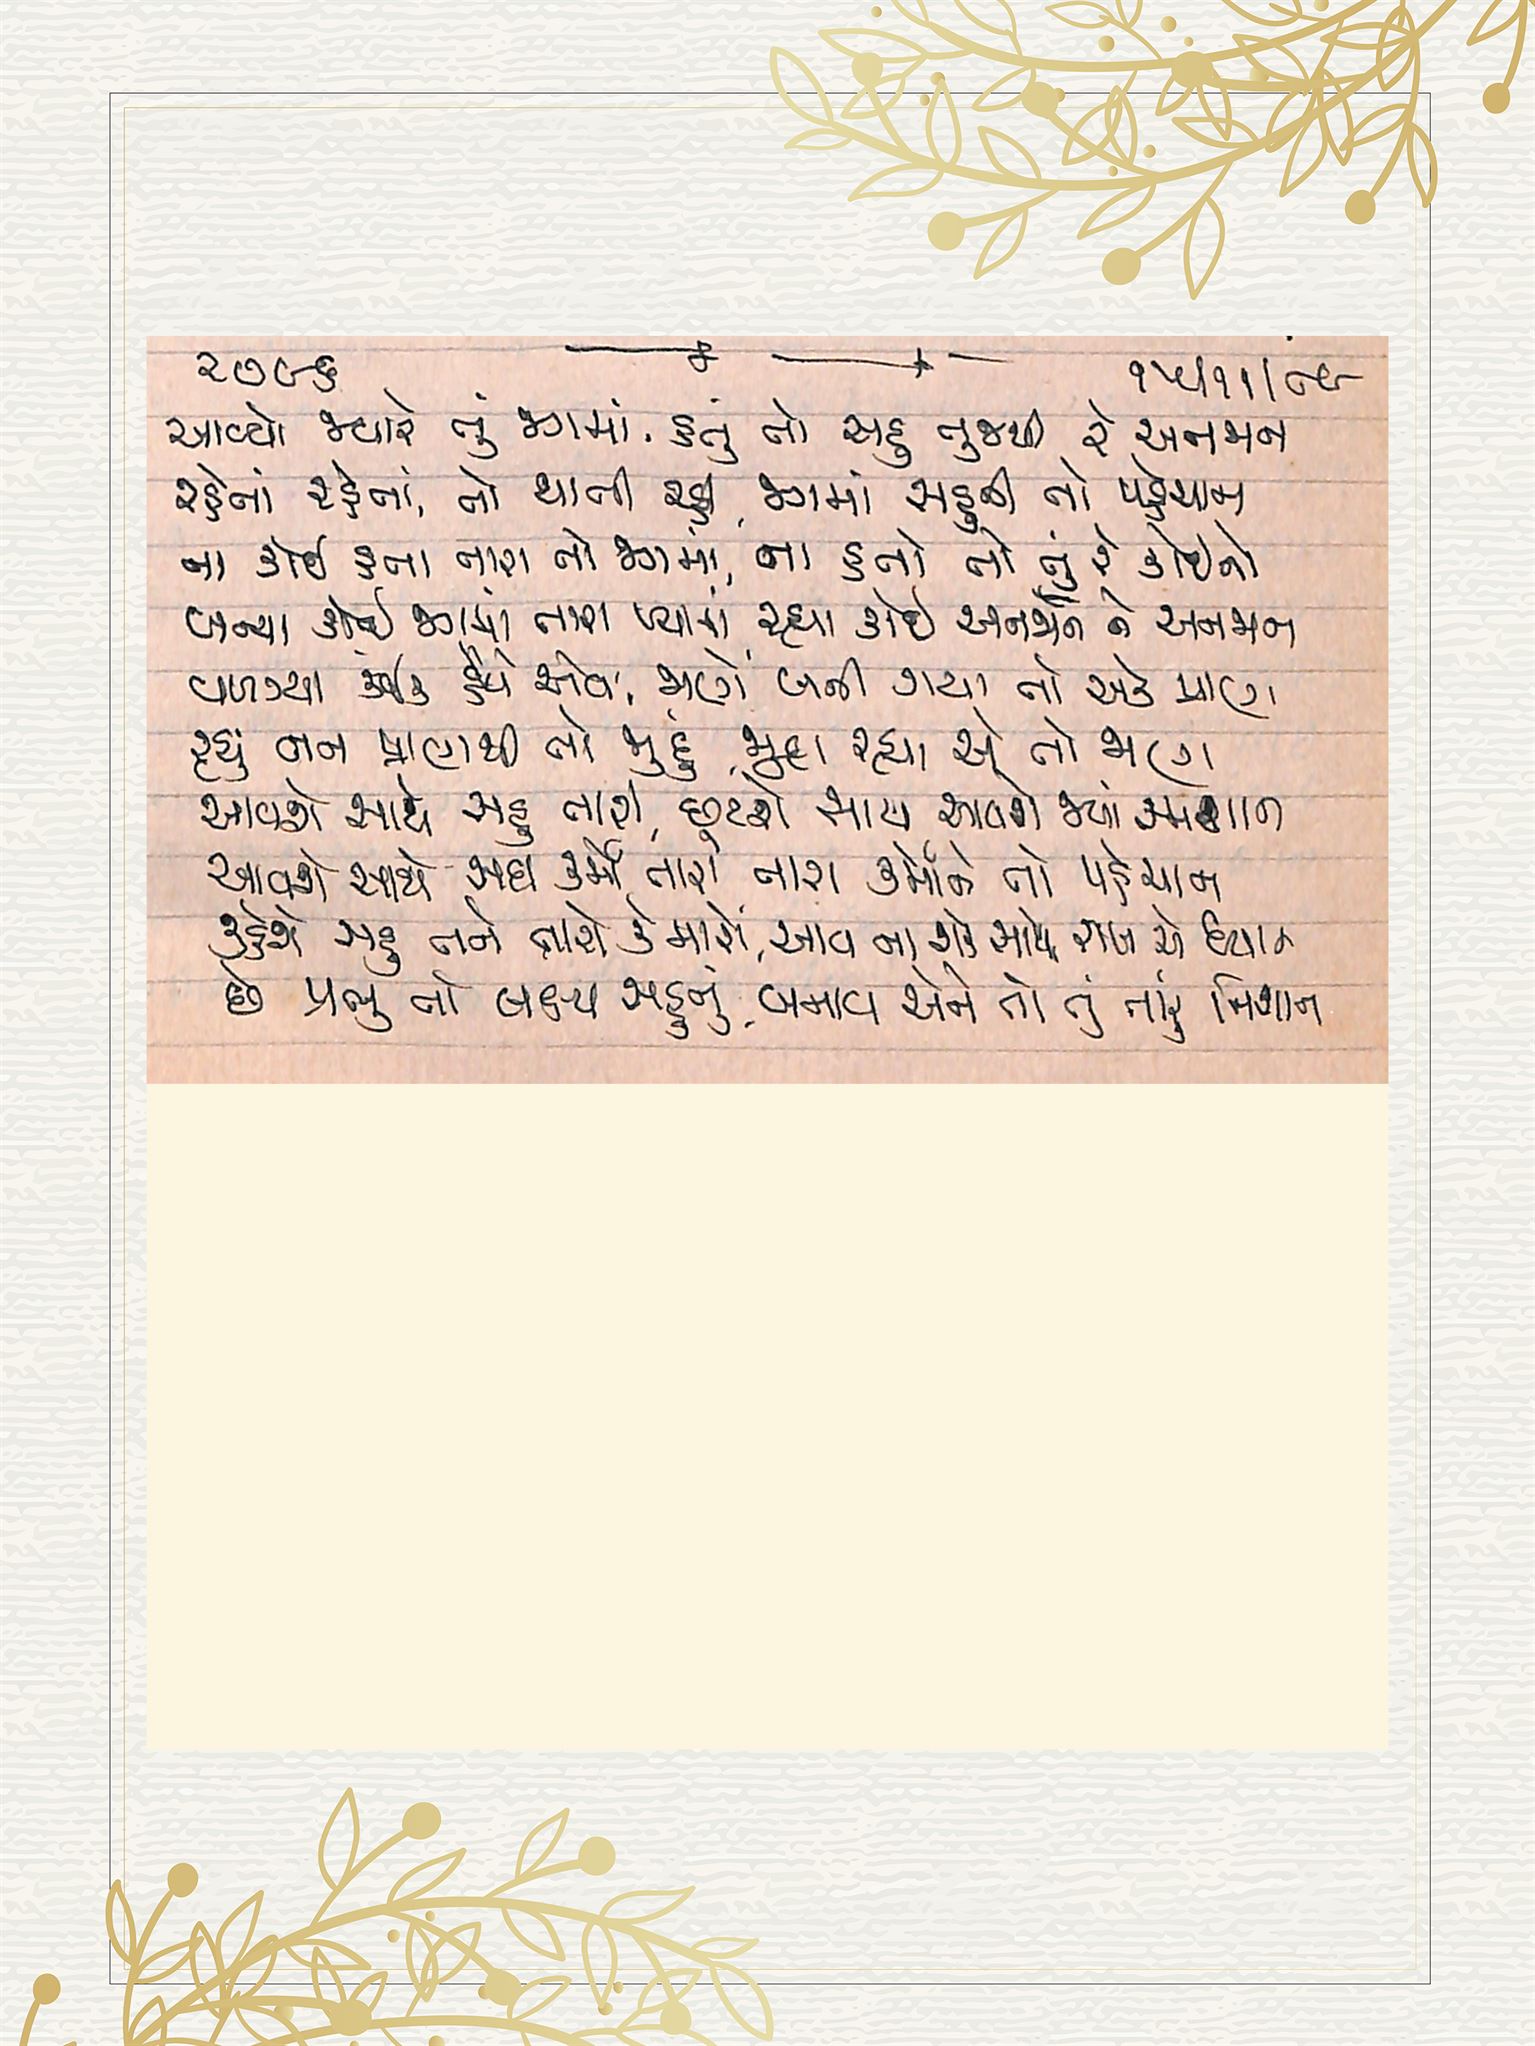 ૨૭૯૬ ૧૫/૧૧/૯૬
આવ્યો જ્યારે તું જગમાં. હતું તો સહુ તુજથી રે અનજાન
રહેતાં રહેતાં, તો થાતી રહી, જગમાં સહુની તો પહેચાન
ના કોઈ હતા તારા તો જગમાં, ના હતો તો તું રે કોઈનો
બન્યા કોઈ જગમાં તારા પ્યારાં, રહ્યા કોઈ અનજાન ને અનજાન
વળગ્યા કંઈક હૈયે એવા, જાણે બની ગયા તો એક પ્રાણ
રહ્યું તન પ્રાણથી તો જુદું, જુદા રહ્યા એ તો જાણ
આવશે સાથે સહુ તારી, છૂટશે સાથ આવશે જ્યાં સ્મશાન
આવશે સાથે સદા કર્મો તારાં, તારા કર્મોને તો પહેચાન
કહેશે સહુ તને તારો કે મારો, આવી ના શકે સાથે રાખ એ ધ્યાન
છે પ્રભુ તો લક્ષ્ય સહુનું, બનાવ એને તો તું તારું નિશાન